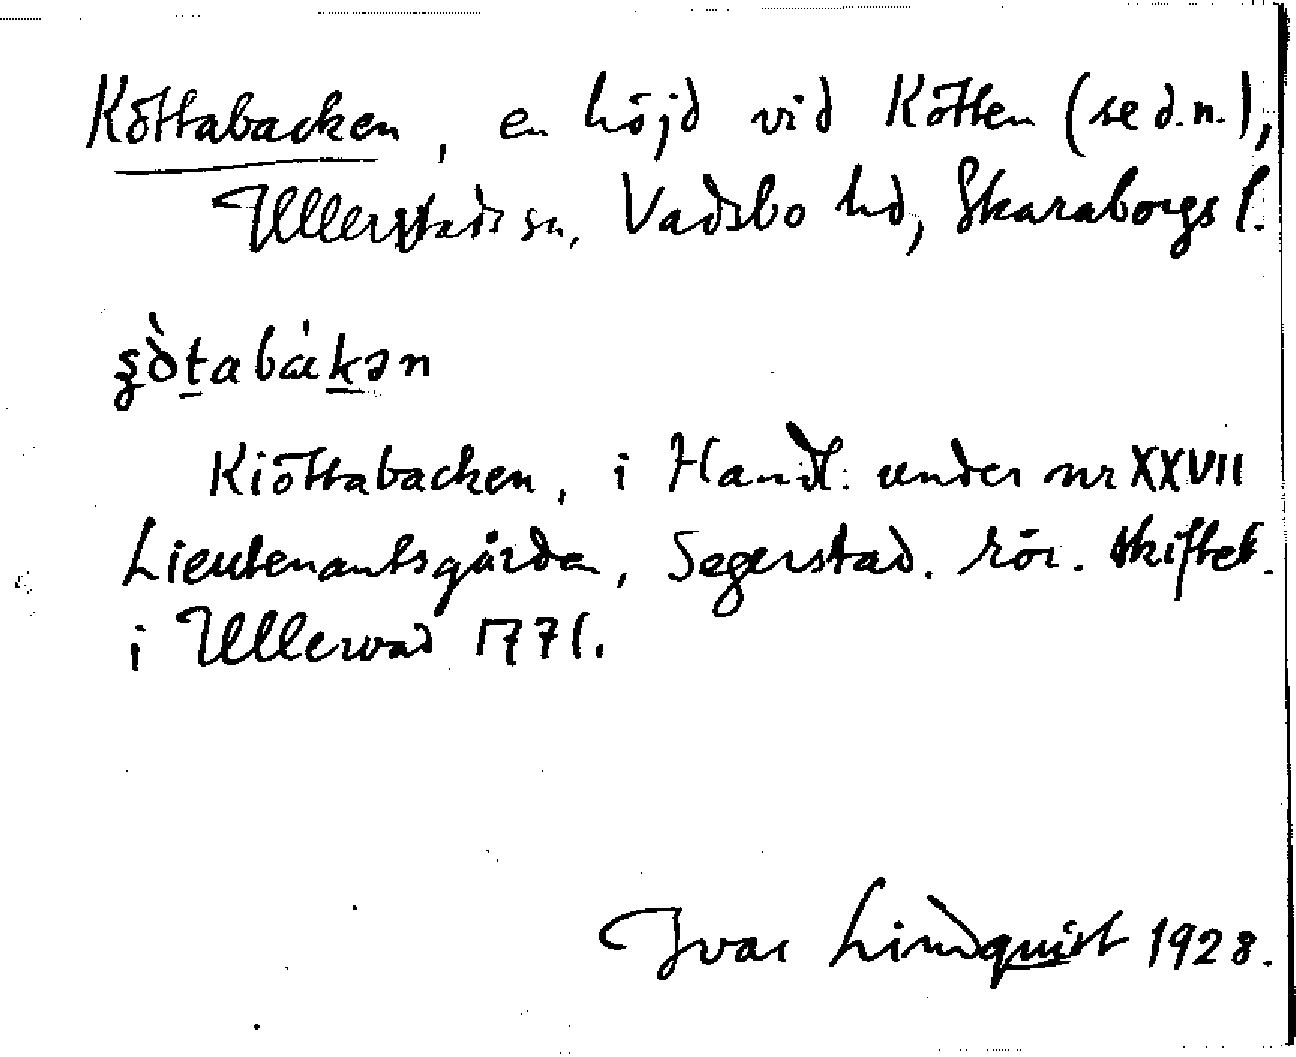 Köttabacken, en höjd vid Kötten (se d.n.),
Ullerstads sn, Vadsbo hd, Skaraborgs l.
ʂòt̠abák̠ən
Kiöttabacken, i Handl. under nr XXVII
Lieutenantsgården, Segerstad. rör. skiftet.
i Ullervad 1771.
Ivar Lindquist 1928.